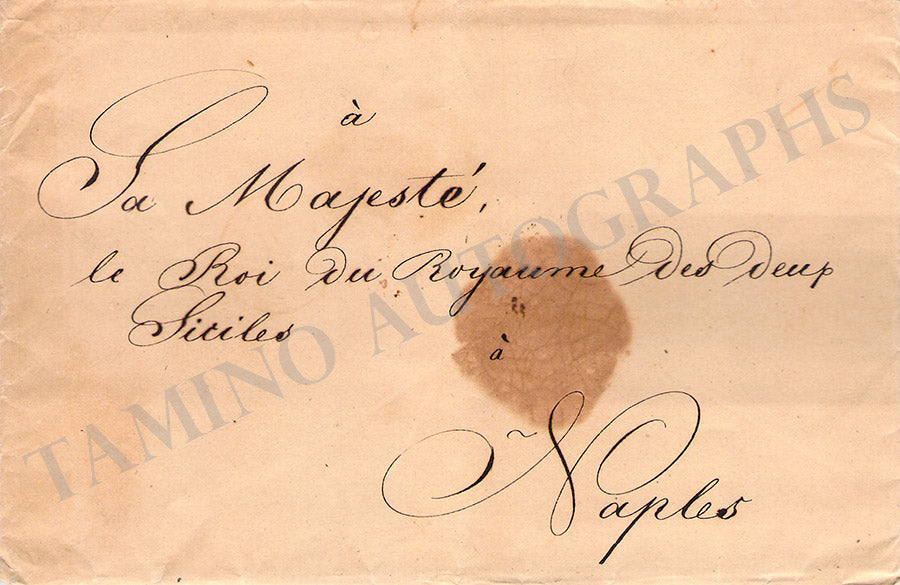 à
Sa Majesté,
le Roi du Royaume des deux
Siciles
à
Naples
TAMINO AUTOGRAPHS